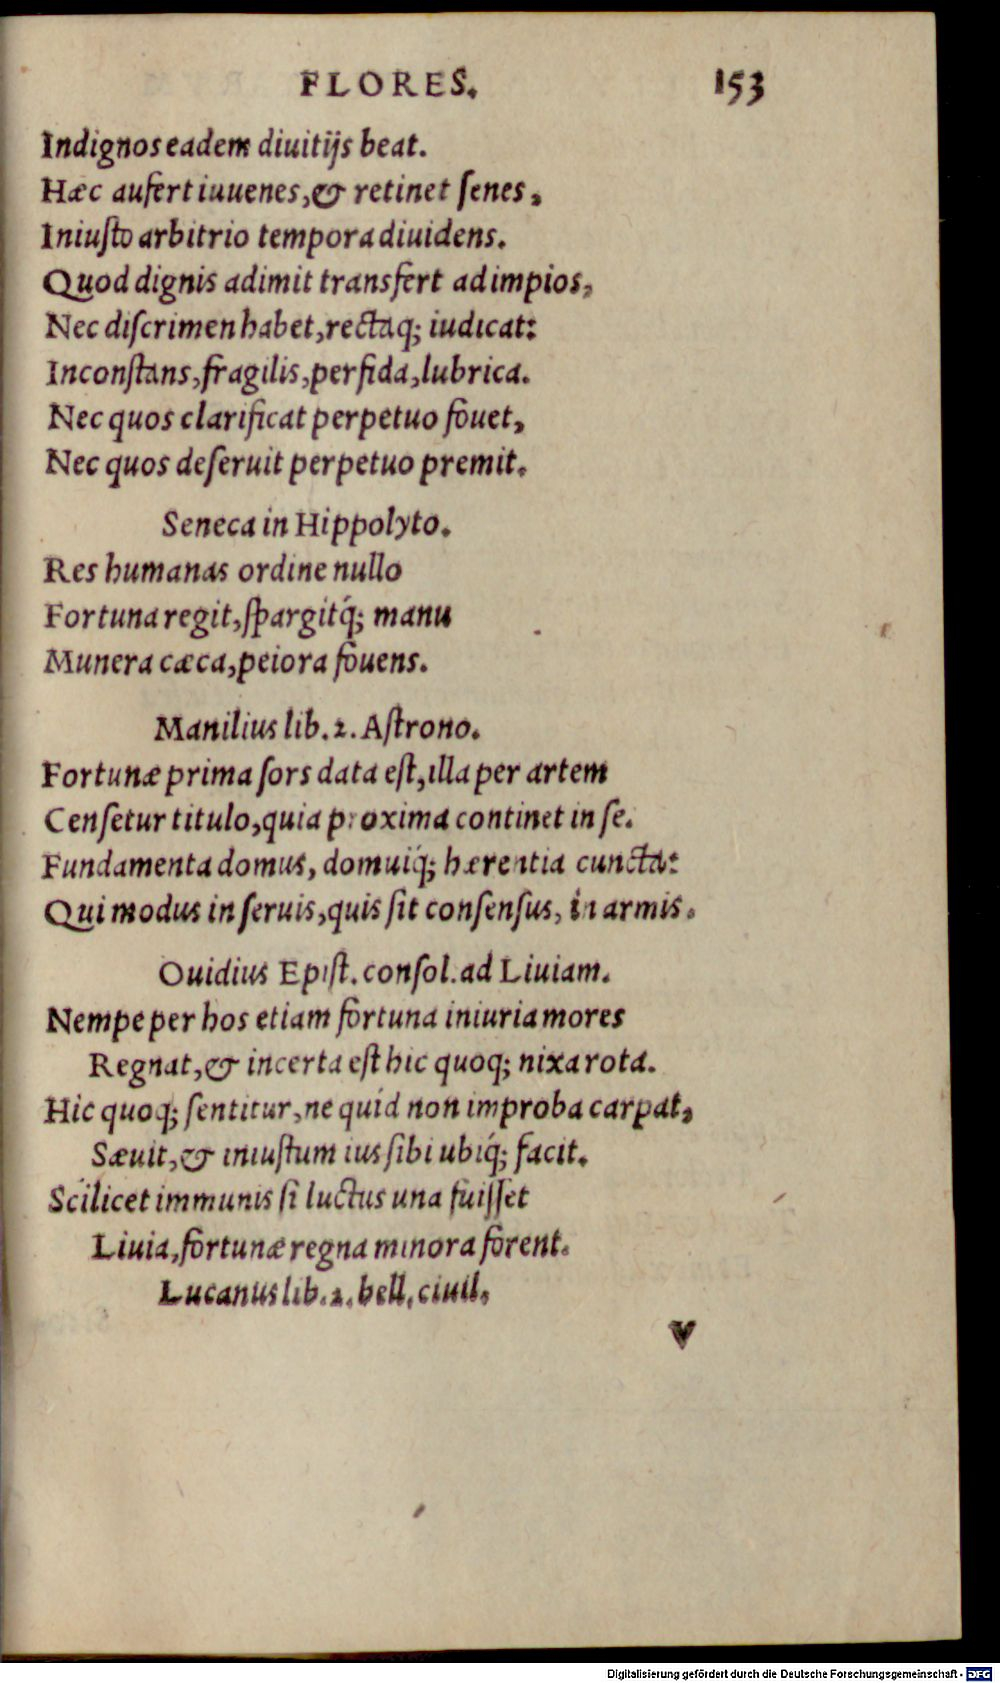 FLORES. 153
Indignos eadem diuitijs beat.
Hæc aufert iuuenes, & retinet ſenes,
Iniuſto arbitrio tempora diuidens.
Quod dignis adimit transfert ad impios,
Nec diſcrimen habet, rectaq; iudicat:
Inconſtans, fragilis, perfida, lubrica.
Nec quos clarificat perpetuo fouet,
Nec quos deſeruit perpetuo premit.
Seneca in Hippolyto.
Res humanas ordine nullo
Fortuna regit, ſpargitq́; manu
Munera cæca, peiora fouens.
Manilius lib. 2. Aſtrono.
Fortunæ prima ſors data eſt, illa per artem
Cenſetur titulo, quia proxima continet in ſe.
Fundamenta domus, domuiq́; hærentia cuncta:
Qui modus in ſeruis, quis ſit conſenſus, in armis.
Ouidius Epiſt. conſol. ad Liuiam.
Nempe per hos etiam fortuna iniuria mores
Regnat, & incerta eſt hic quoq; nixa rota.
Hic quoq; ſentitur, ne quid non improba carpat,
Sæuit, & iniuſtum ius ſibi ubiq́; facit.
Scilicet immunis ſi luctus una fuiſſet
Liuia, fortunæ regna minora forent.
Lucanus lib. 2. bell. ciuil.
V
Digitalisierung gefördert durch die Deutsche Forschungsgemeinschaft - DFG